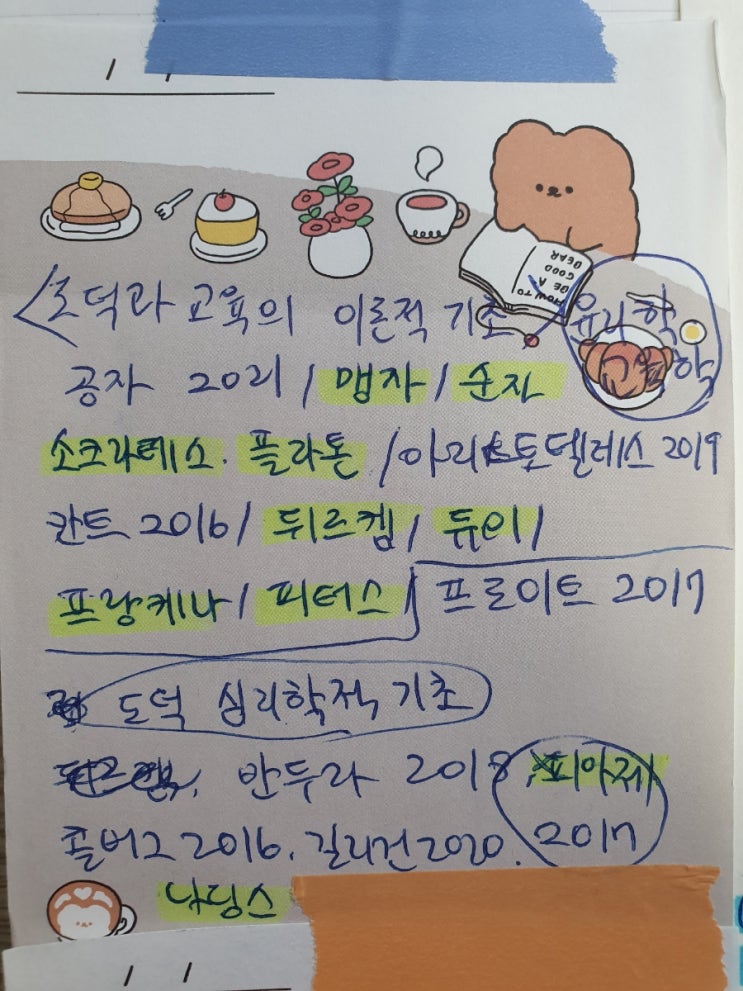 HOW TO
BE A
GOOD
BEAR
<도덕과 교육의 이론적 기초, 윤리학
공자 2021 / 맹자 / 순자
소크라테스. 플라톤 / 아리스토텔레스 2019
칸트 2016 / 뒤르켐 / 듀이 /
프랑케나 / 피터스 / 프로이트 2017
도덕 심리학적 기초
반두라 2018, 피아제
콜버그 2016. 길리건 2020. 2017
나딩스